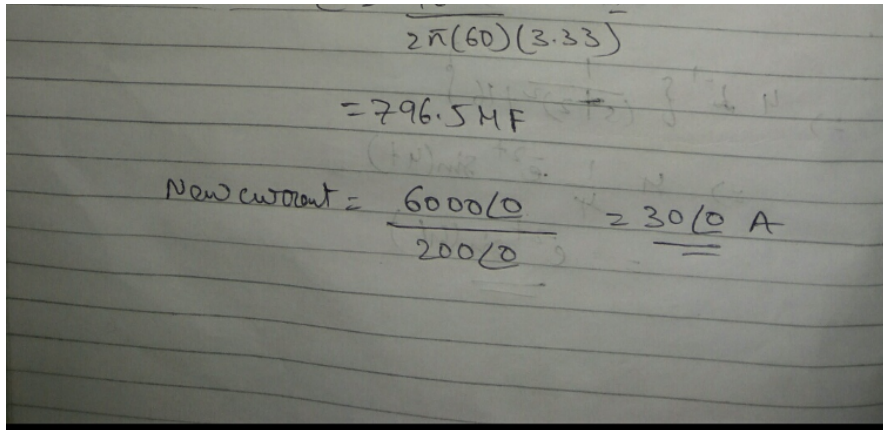 2π(60)(3.33)
=796.5 μF
New current = 6000∠0 / 200∠0 = 30∠0 A